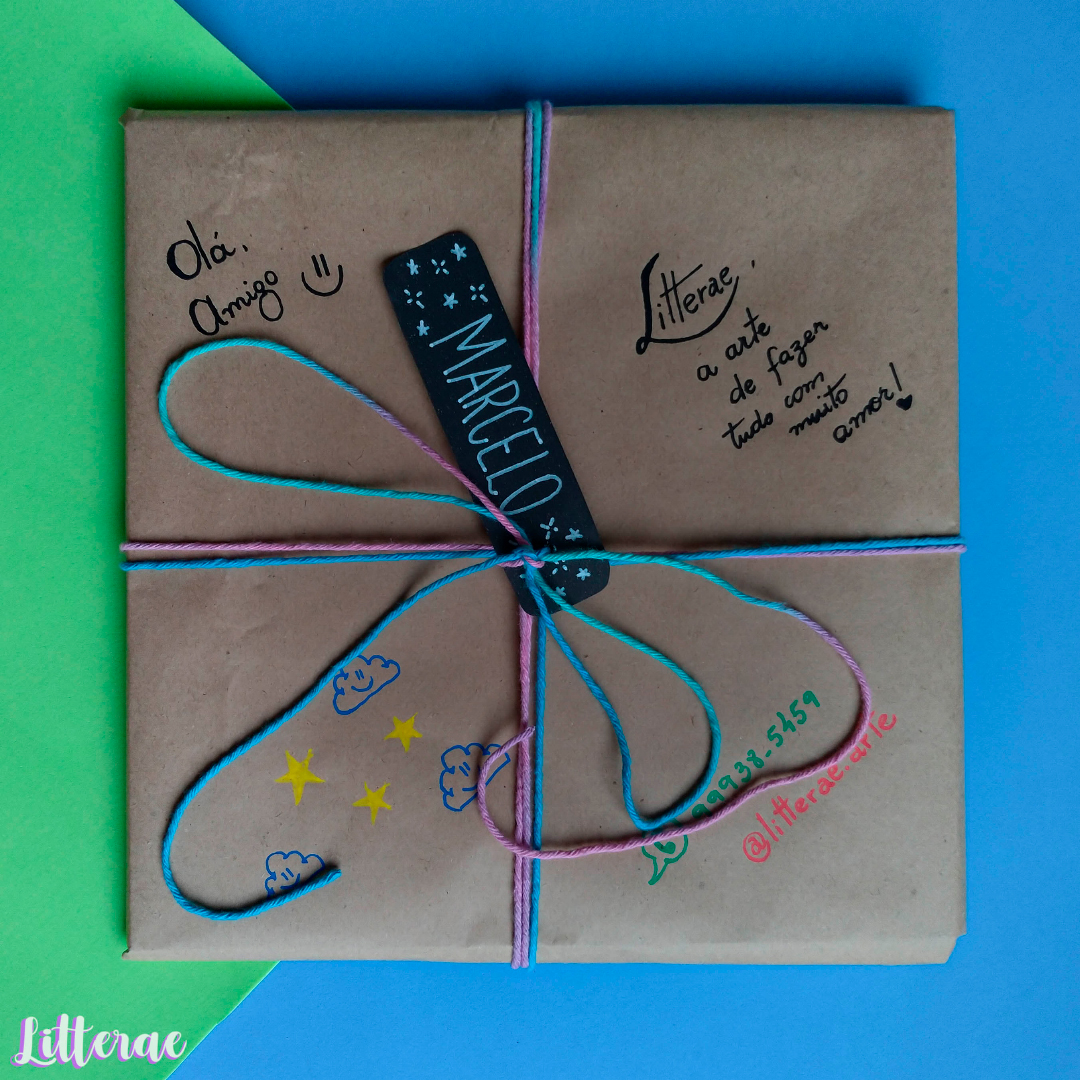 Olá,
Amigo
MARCELO
Litterae,
a arte
de fazer
tudo com
muito
amor!
99938-5459
@litterae.arte
Litterae